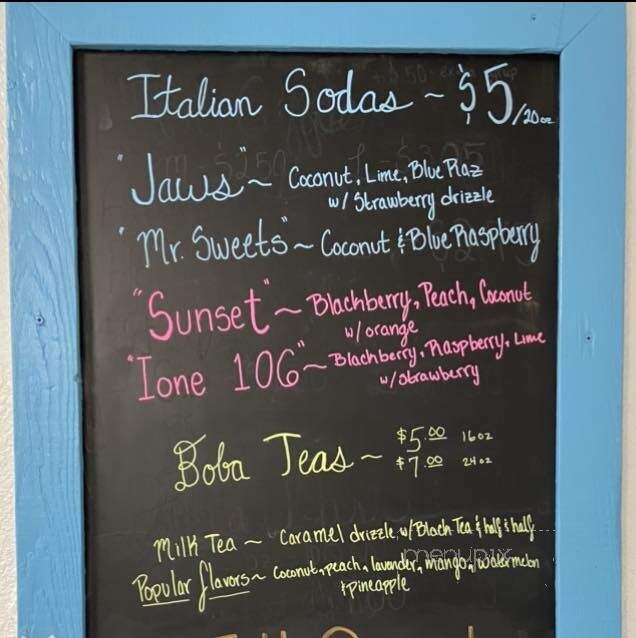 Italian Sodas ~ $5/20oz
"Jaws" ~ Coconut, Lime, Blue Raz
w/ Strawberry drizzle
"Mr. Sweets" ~ Coconut & Blue Raspberry
"Sunset" ~ Blackberry, Peach, Coconut
w/ orange
"Ione 106" ~ Blackberry, Raspberry, Lime
w/ strawberry
Boba Teas ~ $5.00 16oz
$7.00 24oz
Milk Tea ~ Caramel drizzle, w/ Black Tea & half & half
menupix
Popular flavors ~ Coconut, peach, lavender, mango, watermelon
& pineapple